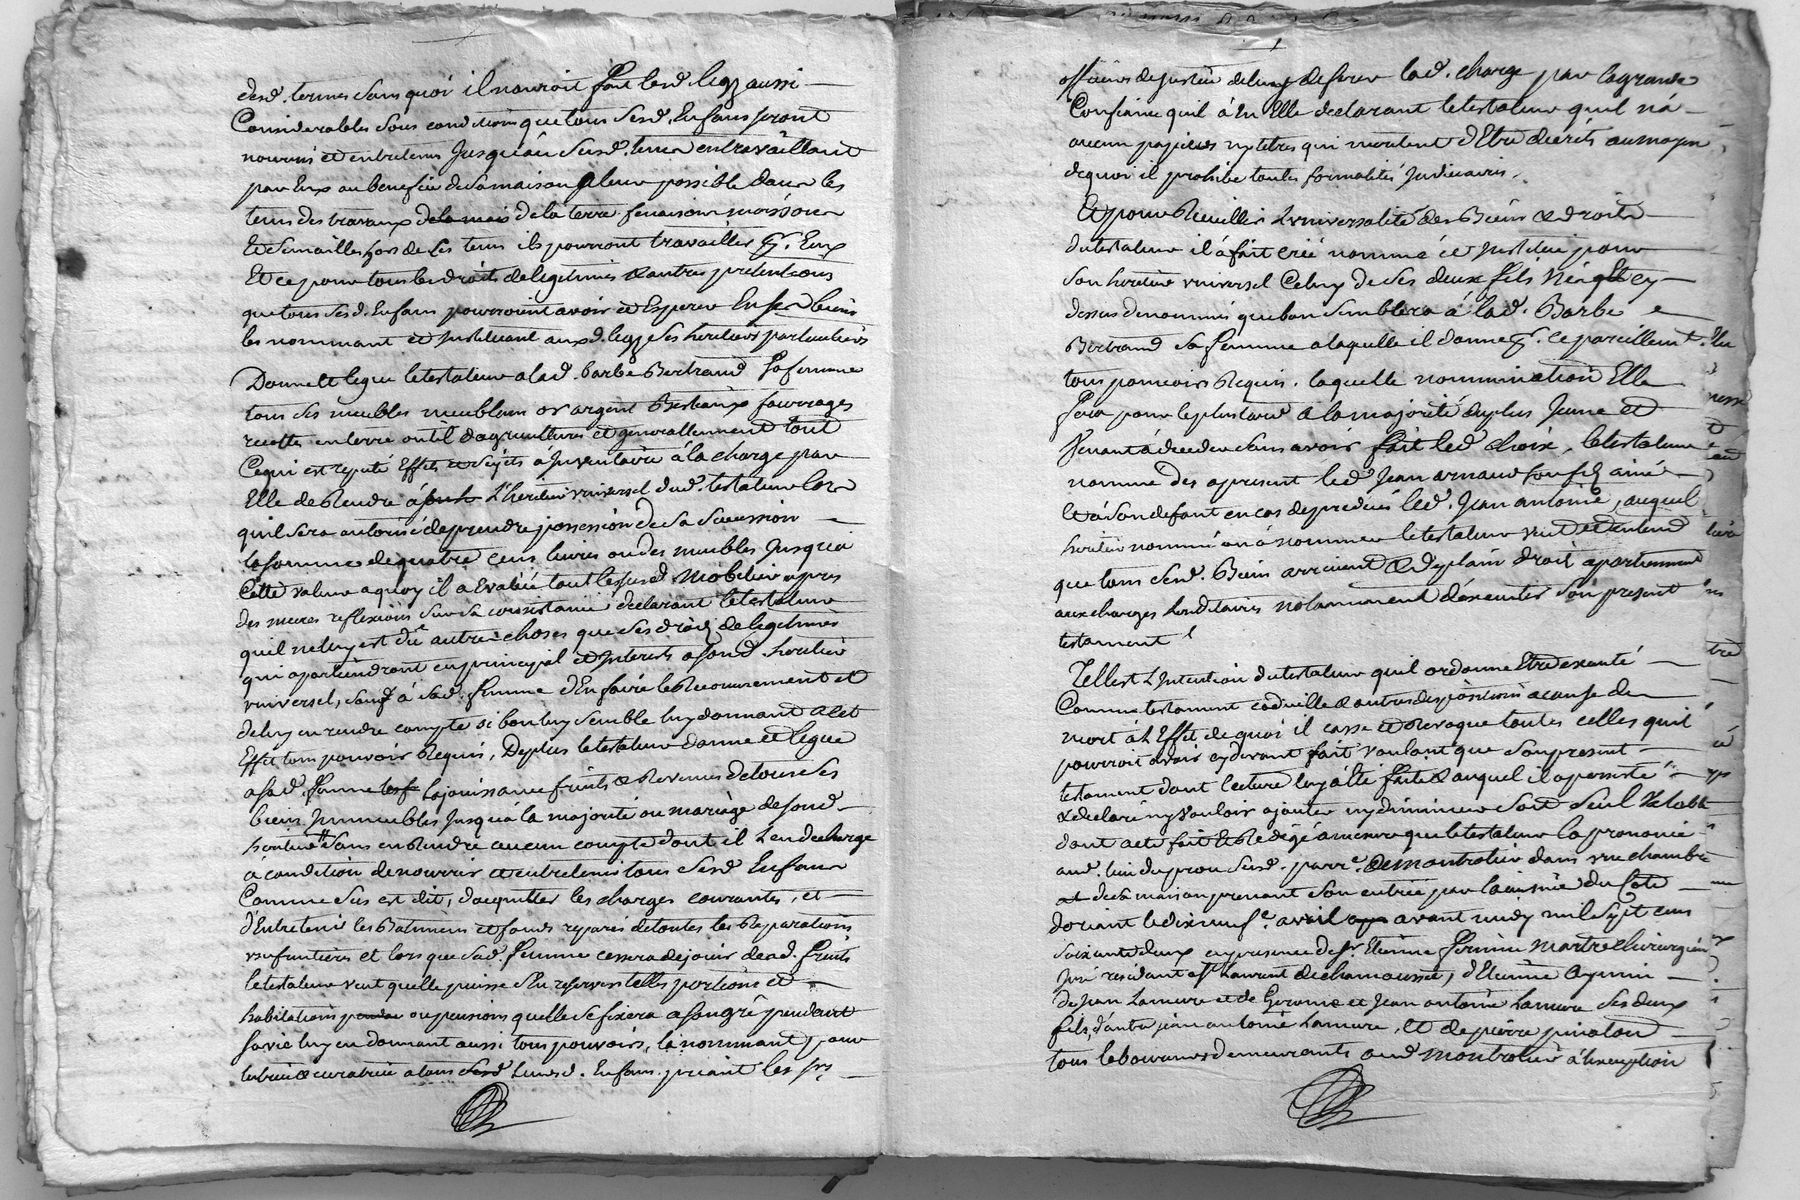 desd. termes sans quoi il nauroit fait lesd. legz aussi
Considerables sous condition que tous sesd. Enfans seront
nourris et entretenus Jusqu'au susd. terme en travaillant
par Eux au benefice de sa maison a leur possible dans les
tems des travaux de la mais de la terre fenaison moisson
Et semailles hors de ses tems ils pourront travailler pr. Eux
Et ce pour tous les droits de legitimes & autres prétentions
que tous sesd. Enfans pourroient avoir et Esperer En ses biens
les nommant et Instituant auxd. legz ses heritiers particuliers
Donne et legue le testateur a lad. barbe Bertrand sa femme
tous ses meubles meublans or argent Bestiaux fourrages
recolte en terre outil d'agriculture et generallement tout
Ce qui est reputé Effets et sujets a Inventaire a la charge par
Elle de Rendre á L'heritier universel dud. testateur lors
quil sera autorisé de prendre possession de sa succession
la somme de quatre cens livres ou des meubles Jusqu'a
Cette valeur a quoy il a Evalué tout le susd. Mobilier apres
des meures reflexions sur sa consistance declarant le testateur
quil ne luy est dû autre choses que ses droits de legitimes
qui apartiendront en principal et Interests a sond. heritier
universel, sauf á sad. femme d'En faire le Recouvrement et
de luy en rendre compte si bon luy semble luy donnant a Cet
Effet tout pouvoir Requis, De plus le testateur donne et legue
a sad. femme la jouissance fruits & Revenus de tous ses
biens Immeubles Jusqu'a la majorité ou mariage de sond.
heritier sans en Rendre aucun compte dont il L'en decharge
á condition de nourrir et entretenir tous sesd. Enfans
Comme sus est dit, d'acquitter les charges courantes, et
d'Entretenir les Batimens et fonds reparés de toutes les Reparations
usufruitieres et lors que sad. femme cessera de jouir desd. fruits
le testateur veut quelle puisse s'En reserver telles portions et
habitations ou pensions quelle se fixera a son gré pendant
sa vie luy en donnant aussi tous pouvoirs, la nommant pour
tutrice & curatrice a tous Enfans priant les srs
officiers de Justice de luy deferer lad. charge par la grande
Confiance quil á En Elle declarant le testateur quil n'á
aucun papiers ny titres qui meritent d'Etre décrits au moyen
de quoi il prohibe toutes formalités Judiciaires.
Et pour Recueillir L'universalité des Biens & droits
du testateur il á fait créé nommé et Institué pour
son heritier universel Celuy de ses deux fils cy
dessus denommés que bon semblera á lad. Barbe
Bertrand sa femme a laquelle il donne pr. ce pareillemt.
tous pouvoirs Requis. laquelle nommination Elle
fera pour le plus tard á la majorité du plus Jeune et
venant á deceder sans avoir fait led. choix, le testateur
nomme des apresent led. Jean arnaud son fils ainé
et á son defaut en cas de predecés led. Jean antoine, auquel
heritier nommé ou á nommer le testateur veut et entend
que tous sesd. Biens arrivent & de plain droit apartiennent
aux charges hereditaires notamment d'éxecuter son présent
testament
Telle est L'Intention du testateur quil ordonne Etre executé
Comme testament codicille & autres dispositions a cause de
mort á L'Effet de quoi il casse et Revoque toutes celles quil
pourroit avoir cy devant fait voulant que son present
testament dont lecture luy á été faite & auquel il a persisté
& declaré ny vouloir ajouter ny diminuer soit seul Valable
dont acte fait et Redigé á mesure que le testateur la prononcé
aud. lieu dupron susd. parre. de montrotier dans une chambre
de sa maison prenant son entrée par la cuisine du Coté
d'orient le dix neufe. avril avant midy mil sept cens
soixante deux en presence de sr. Etienne fermin Maitre chirurgien
Juré residant a st. Laurent de chamousset, d'Etienne
de Jean Lamure et de Gerome et Jean antoine Lamure ses deux
fils, d'autre jean antoine Lamure, et de pierre pinaton
tous laboureurs demeurants aud. Montrotier á L'exception